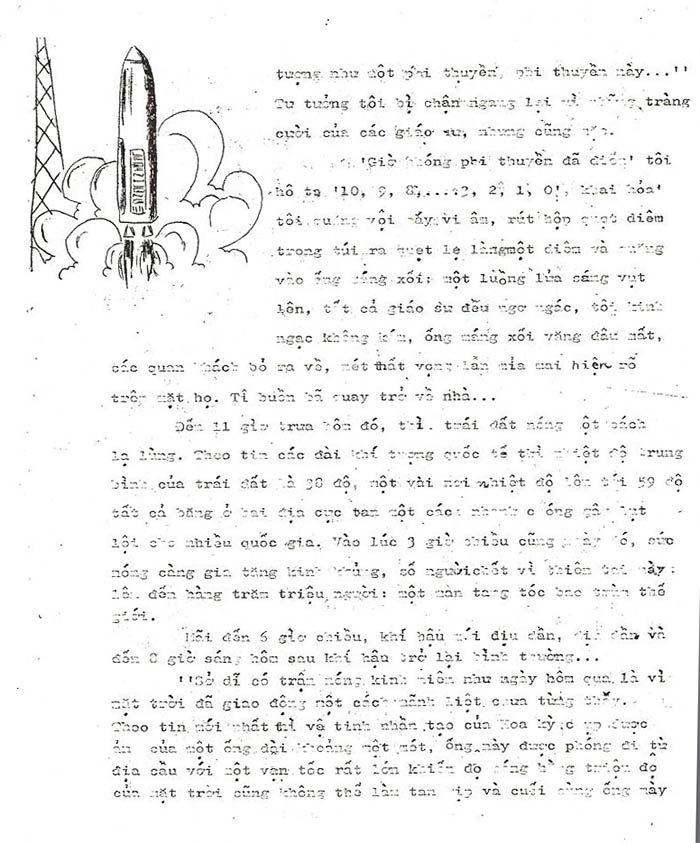 tượng như một phi thuyền, phi thuyền này...''
Tư tưởng tôi bị chận ngang lại vì những tràng
cười của các giáo sư, nhưng cũng
'Giờ phóng phi thuyền đã điểm' tôi
hô to '10, 9, 8,...:3, 2, 1, 0!, khai hỏa'
tôi vội máy vi âm, rút hộp quẹt diêm
trong túi ra quẹt lẹ làngmột diêm và
vào ống máng xối: một luồng lửa sáng vụt
lên, tất cả giáo sư đều ngơ ngác, tôi kinh
ngạc không kém, ống máng xối văng đâu mất,
các quan khách bỏ ra về, nét thất vọng lẫn mỉa mai hiện rõ
trên mặt họ. Tôi buồn bã quay trở về nhà...
Đến 11 giờ trưa hôm đó, thì trái đất nóng một cách
lạ lùng. Theo tin các đài khí tượng quốc tế thì nhiệt độ trung
bình của trái đất là 38 độ, một vài nơi nhiệt độ lên tới 59 độ
tất cả băng ở hai địa cực tan một cách nhanh chóng gây lụt
lội cho nhiều quốc gia. Vào lúc 3 giờ chiều cũng ngày đó, sức
nóng càng gia tăng kinh khủng, số ngườichết vì thiên tai này
lên đến hàng trăm triệu người: một màn tang tóc bao trùm thế
giới.
Mãi đến 6 giờ chiều, khí hậu mới dịu dần, dịu dần và
đến 8 giờ sáng hôm sau khí hậu trở lại bình thường...
''Sở dĩ có trận nóng kinh niên như ngày hôm qua là vì
mặt trời đã giao động một cách mãnh liệt chưa từng thấy.
Theo tin mới nhất thì vệ tinh nhân tạo của Hoa kỳ chụp được
ảnh của một ống dài khoảng một mét, ống này được phóng đi từ
địa cầu với một vận tốc rất lớn khiến độ nóng hàng triệu độ
của mặt trời cũng không thể làm tan kịp và cuối cùng ống này